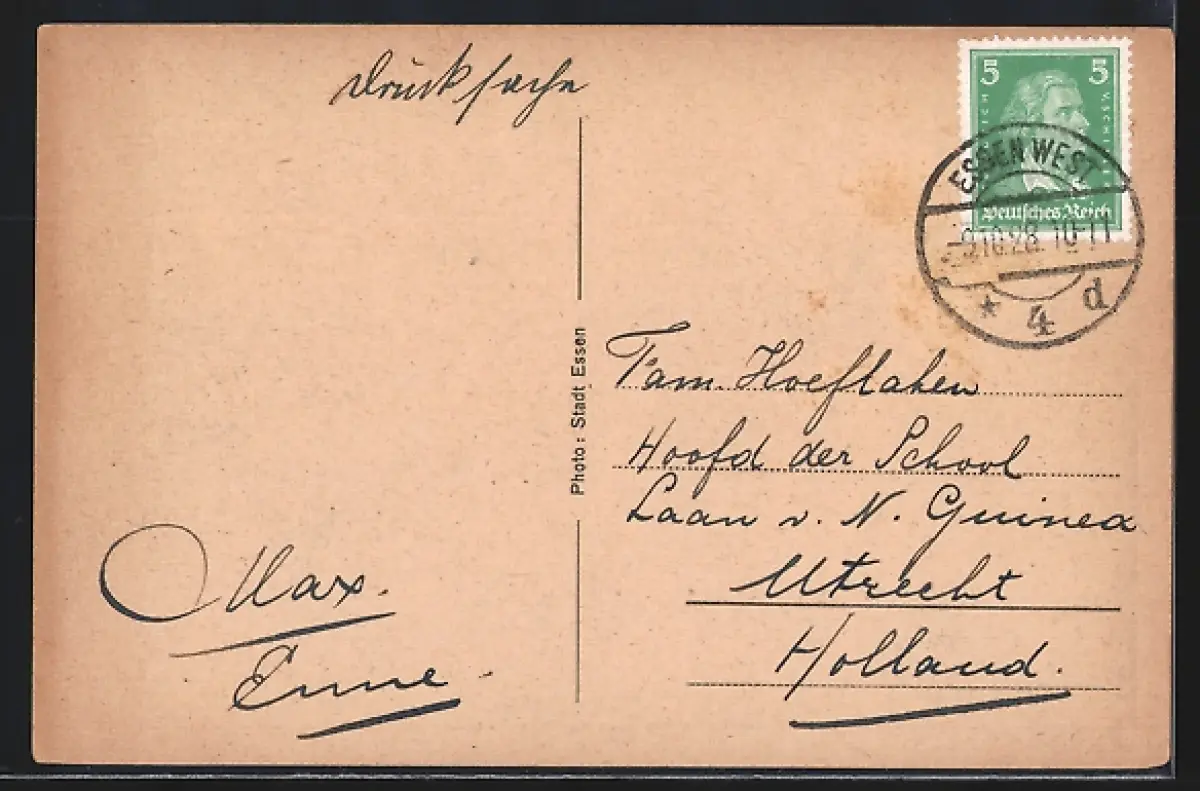 Drucksache
5 5
ESSEN WEST
Deutsches Reich
9.10.28. 10-11
* 4 d
Photo: Stadt Essen
Fam. Hoeflaken
Hoofd der School
Laan v. N. Guinea
Utrecht
Holland.
Max.
Enne.